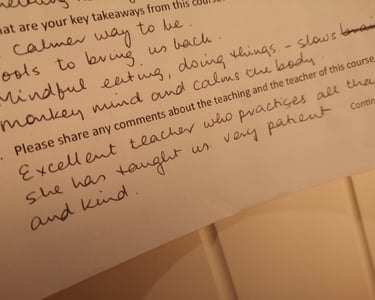 hat are your key takeaways from this cours
calmer way to be.
ools to bring us back.
Mindful eating, doing things - slows
monkey mind and calms the body.
Please share any comments about the teaching and the teacher of this course
Excellent teacher who practices all the
she has taught us. Very patient
Contin
and kind.